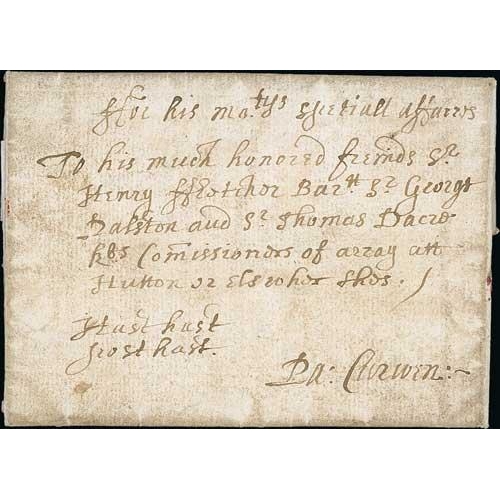 ffor his ma:tys speciall affaires
To his much honored freinds Sr.
Henry ffletcher Bartt Sr. George
Dalston and Sr. Thomas Dacre
kts Comissioners of array att
Hutton or Elswher thes.
Hast hast
post hast.
Pa: Curwen:~